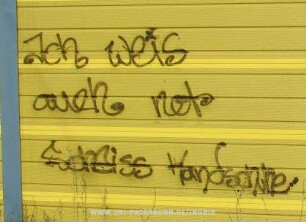 Ich weis
auch not
Scheiss Handschrift
WWW.UNI-PADERBORN.DE/INGRID